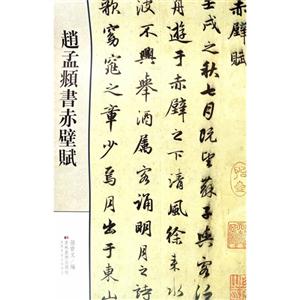 趙孟頫書赤壁賦
赤壁賦
壬戌之秋七月既望蘇子與客泛
舟遊于赤壁之下清風徐來水
波不興舉酒屬客誦明月之詩
歌窈窕之章少焉月出于東山